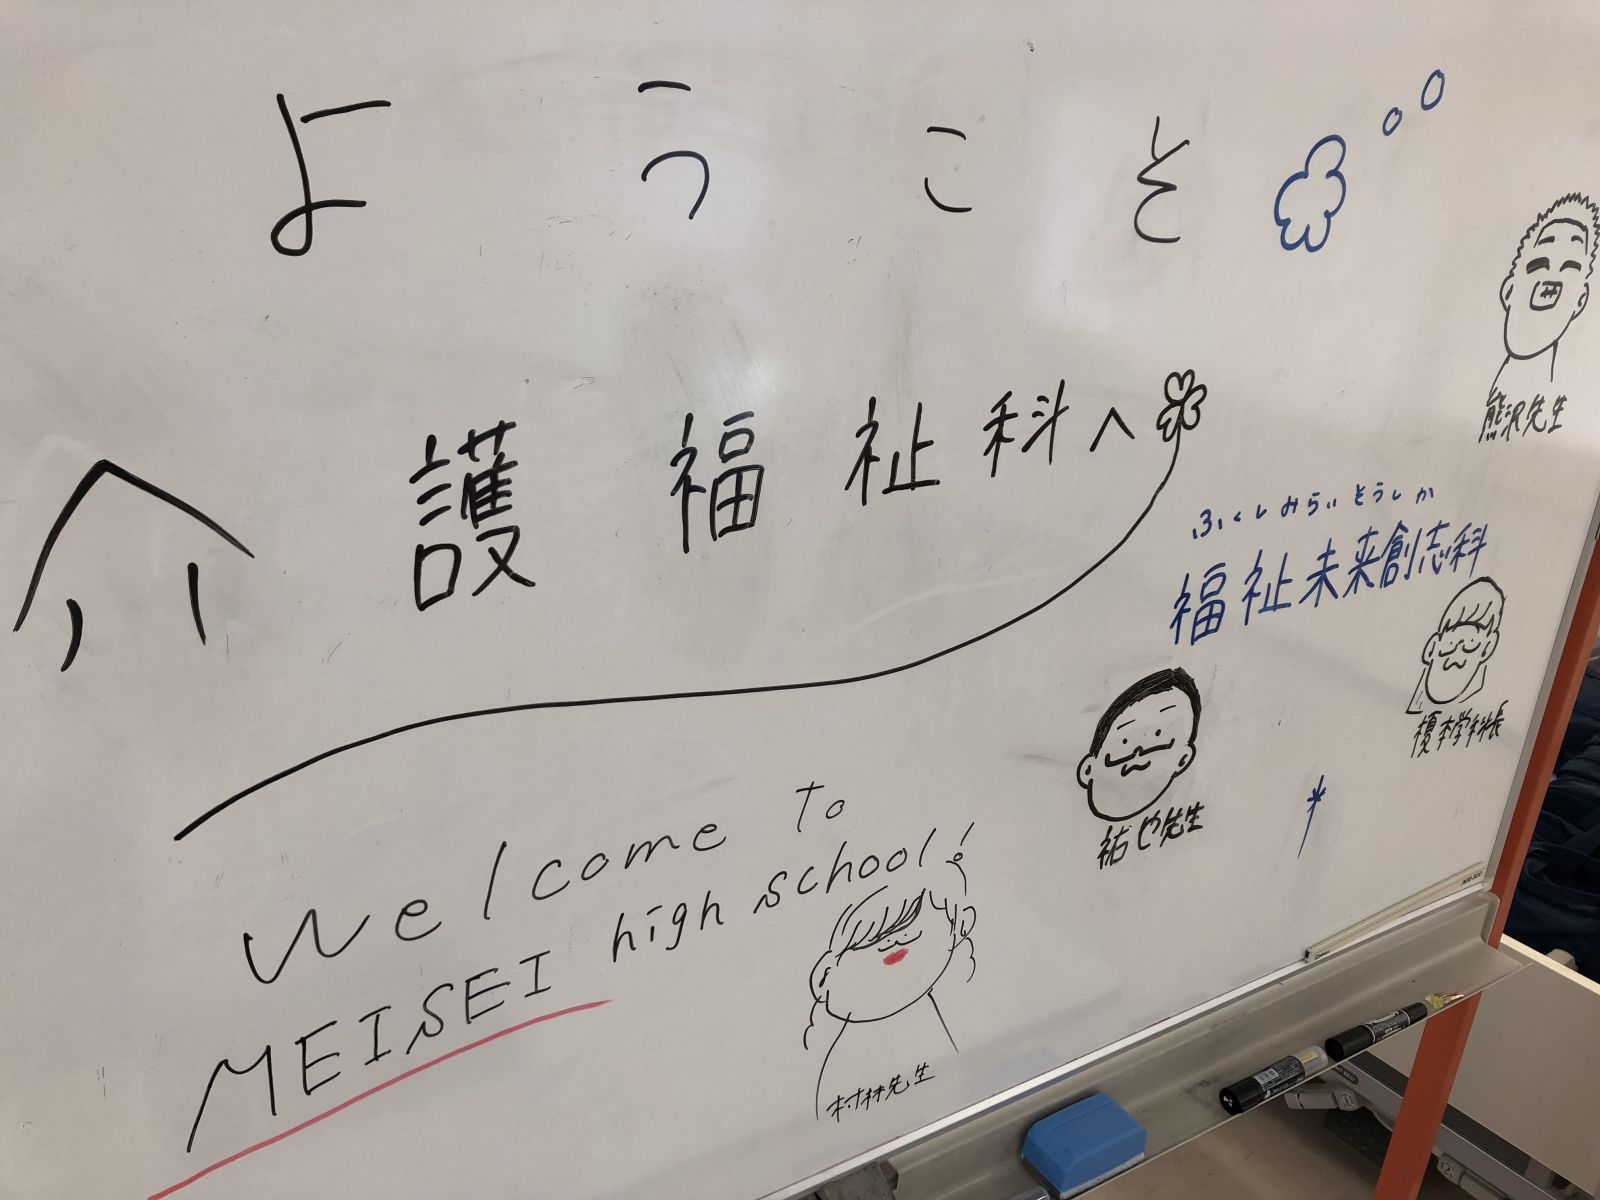 ようこそ
介護福祉科へ
熊沢先生
ふくしみらいそうしか
福祉未来創志科
榎本学科長
祐也先生
Welcome to
MEISEI high school!
村林先生